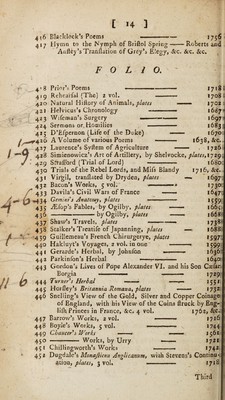 [ 14 ]
416 Blacklock's Poems 1756
417 Hymn to the Nymph of Bristol Spring — Roberts and
Anstey's Translation of Grey's Elegy, &c. &c. &c.
FOLIO.
418 Prior's Poems 1718
419 Rehearsal (The) 2 vol. 1708
420 Natural History of Animals, plates 1702
421 Helvicus's Chronology 1687
423 Wiseman's Surgery 1697
424 Sermons or Homilies 1683
425 D'Espernon (Life of the Duke) 1670
426 A Volume of various Poems 1638, &c.
427 Laurence's System of Agriculture 1726
428 Simienowicz's Art of Artillery, by Shelvocke, plates, 1729
429 Strafford (Trial of Lord)
430 Trials of the Rebel Lords, and Miss Blandy 1716, &c.
431 Virgil, translated by Dryden, plates 1697
432 Bacon's Works, 5 vol. 1730
433 Davila's Civil Wars of France 1647
434 Gemini's Anatomy, plates 1559
435 Æsop's Fables, by Ogilby, plates
436 by Ogilby, plates 1668
437 Shaw's Travels, plates
438 Stalker's Treatise of Japanning, plates 1688
439 Guillemeau's French Chirurgerye, plates 1597
440 Hakluyt's Voyages, 2 vol. in one 1599
441 Gerarde's Herbal, by Johnson 1636
442 Parkinson's Herbal 1640
443 Gordon's Lives of Pope Alexander VI. and his Son Cæsar
Borgia
444 Turner's Herbal 1551
445 Horsley's Britannia Romana, plates 1732
446 Snelling's View of the Gold, Silver and Copper Coinage
of England, with his View of the Coins struck by Eng-
lish Princes in France, &c. 4 vol. 1762, &c.
447 Barrow's Works, 2 vol.
448 Boyle's Works, 5 vol. 1744
449 Chaucer's Works 1561
450 Works, by Urry 1721
451 Chillingworth's Works 1742
452 Dugdale's Monasticon Anglicanum, with Stevens's Continu-
ation, plates, 5 vol. 1718
Third
1-
1-9
4-6
11-6